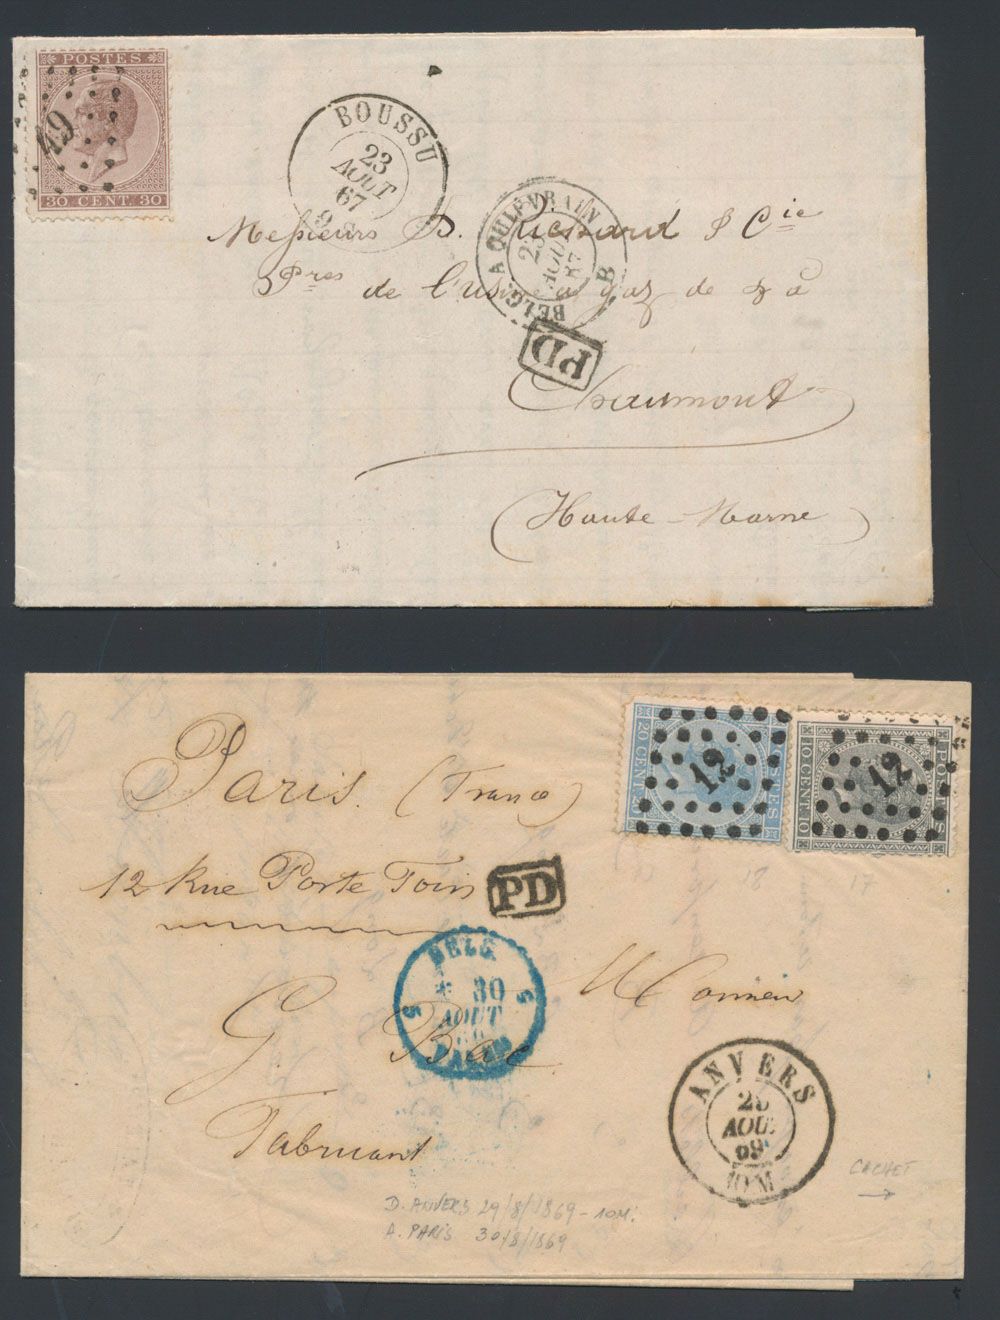 POSTES
49
30 CENT. 30
BOUSSU
23
AOUT
67
9
BELG. A QUIEVRAIN
23
AOUT
67
B
Messieurs D. Richard & Cie
Pres de l'usine a gaz de & a
PD
Chaumont
(Haute-Marne)
20 CENT. 20
POSTES
12
10 CENT. 10
POSTES
12
Paris. (France)
12 Rue Porte Foin
PD
18
17
BELG.
* 30
AOUT
69
PARIS
5
5
Monsieur
G. Bac
Fabricant
ANVERS
AOU.
69
10 M
CACHET
D. ANVERS 29/8/1869 - 10M.
A. PARIS 30/8/1869